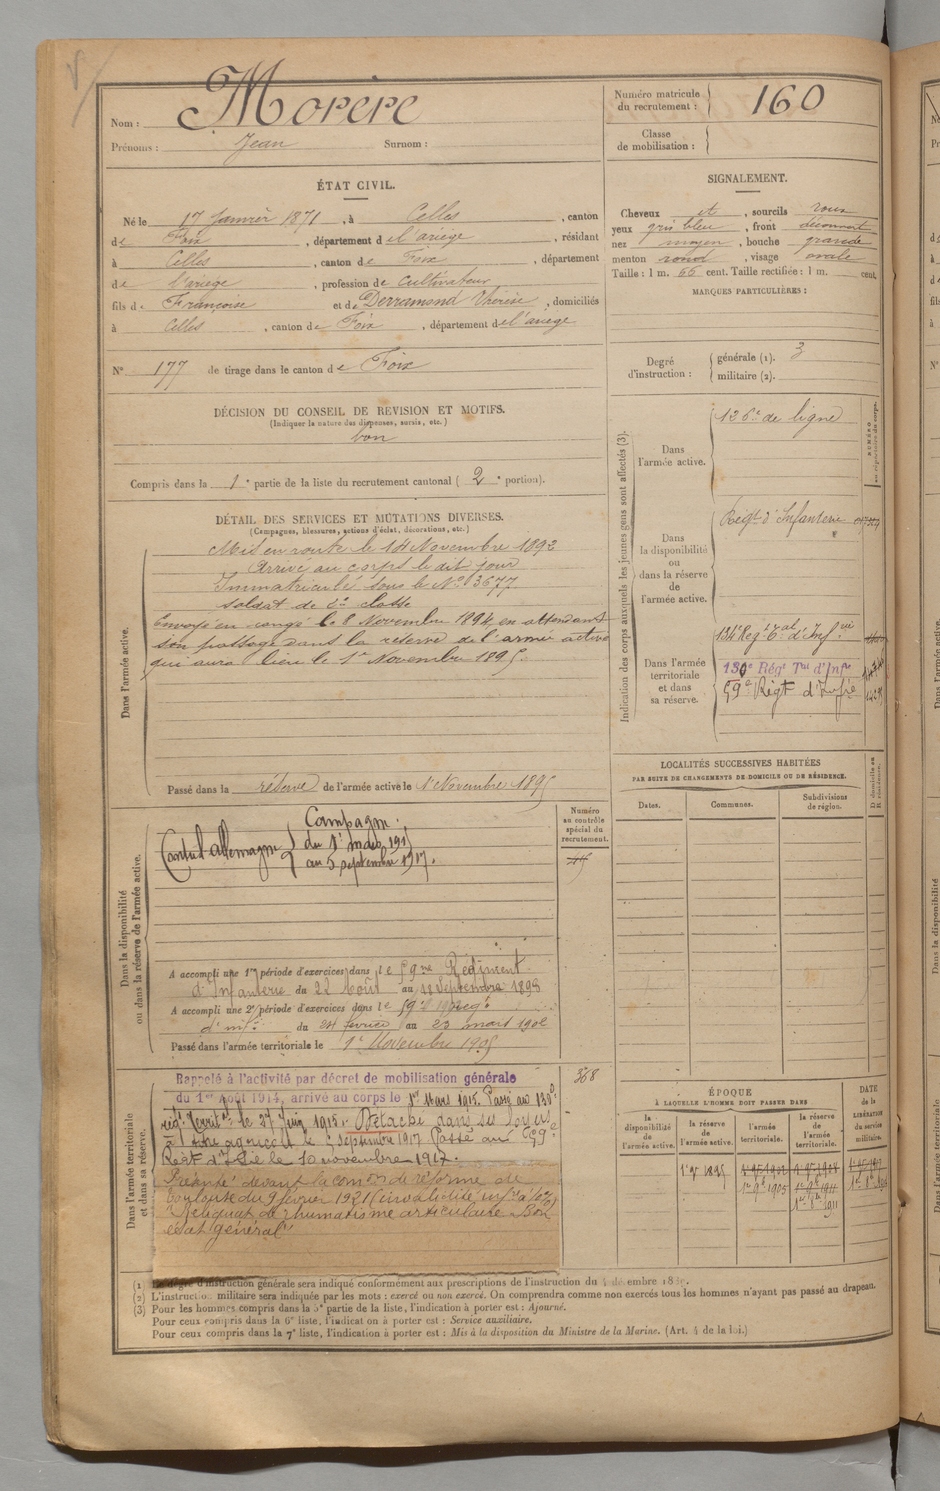 Nom : Morère
Prénoms : Jean Surnom :
Numéro matricule du recrutement : 160
Classe de mobilisation :
ÉTAT CIVIL.
Né le 17 Janvier 1871, à Celles, canton
de Foix, département de l'ariège, résidant
à Celles, canton de Foix, département
de l'ariège, profession de cultivateur
fils de Françoise et de Derramond Thérèse, domiciliés
à Celles, canton de Foix, département de l'ariege
N° 177 de tirage dans le canton de Foix
SIGNALEMENT.
Cheveux et, sourcils roux
yeux gris bleu, front découvert
nez moyen, bouche grande
menton rond, visage ovale
Taille : 1 m. 66 cent. Taille rectifiée : 1 m. cent.
MARQUES PARTICULIÈRES :
Degré d'instruction : générale (1). 3
militaire (2).
DÉCISION DU CONSEIL DE REVISION ET MOTIFS.
(Indiquer la nature des dispenses, sursis, etc.)
bon
Compris dans la 1e partie de la liste du recrutement cantonal (2e portion).
DÉTAIL DES SERVICES ET MUTATIONS DIVERSES.
(Campagnes, blessures, actions d'éclat, décorations, etc.)
Dans l'armée active.
Mis en route le 14 Novembre 1892
Arrivé au corps le dit jour
Immatriculé sous le N° 3677
soldat de 2e classe
Envoyé en congé le 8 Novembre 1894 en attendant
son passage dans la réserve de l'armée active
qui aura lieu le 1er Novembre 1895.
Passé dans la réserve de l'armée active le 1er Novembre 1895
Dans la disponibilité ou dans la réserve de l'armée active.
Campagne :
Contre l'allemagne du 1er mars 1915
au 5 septembre 1917.
Numéro au contrôle spécial du recrutement.
A accompli une 1re période d'exercices dans le 59me Régiment
d'Infanterie du 22 Août au 18 Septembre 1898
A accompli une 2e période d'exercices dans le 59e régt
d'inf. du 24 fevrier au 23 mars 1902
Passé dans l'armée territoriale le 1er Novembre 1905
Dans l'armée territoriale et dans sa réserve.
Rappelé à l'activité par décret de mobilisation générale
du 1er Août 1914, arrivé au corps le 1er Mars 1915. Passé au 130e
régt Territal le 27 Juin 1915. Détaché dans ses foyers
à titre agricole le 5 septembre 1917 Passé au 59e
Régt d'Infie le 10 novembre 1917.
Présenté devant la comon de réforme de
Toulouse du 9 février 1921 (invalidité infre à 10%)
Reliquat de rhumatisme articulaire Bon
état général
368
Indication des corps auxquels les jeunes gens sont affectés (3).
NUMÉRO au répertoire du corps.
Dans l'armée active.
126e de ligne
Dans la disponibilité ou dans la réserve de l'armée active.
Régt d'Infanterie
Dans l'armée territoriale et dans sa réserve.
134e Régt Tal d'Inf.rie
130e Régt Tal d'Infie
59e Régt d'Infie
LOCALITÉS SUCCESSIVES HABITÉES
PAR SUITE DE CHANGEMENTS DE DOMICILE OU DE RÉSIDENCE.
Dates. Communes. Subdivisions de région. D domicile ou R résidence.
ÉPOQUE
À LAQUELLE L'HOMME DOIT PASSER DANS
DATE de la LIBÉRATION du service militaire.
la disponibilité de l'armée active.
la réserve de l'armée active.
l'armée territoriale.
la réserve de l'armée territoriale.
1er 9bre 1895
1er 9bre 1905
1er 9bre 1911
(1) Le degré d'instruction générale sera indiqué conformément aux prescriptions de l'instruction du
(2) L'instruction militaire sera indiquée par les mots : exercé ou non exercé. On comprendra comme non exercés tous les hommes n'ayant pas passé au drapeau.
(3) Pour les hommes compris dans la 5e partie de la liste, l'indication à porter est : Ajourné.
Pour ceux compris dans la 6e liste, l'indication à porter est : Service auxiliaire.
Pour ceux compris dans la 7e liste, l'indication à porter est : Mis à la disposition du Ministre de la Marine. (Art. 4 de la loi.)